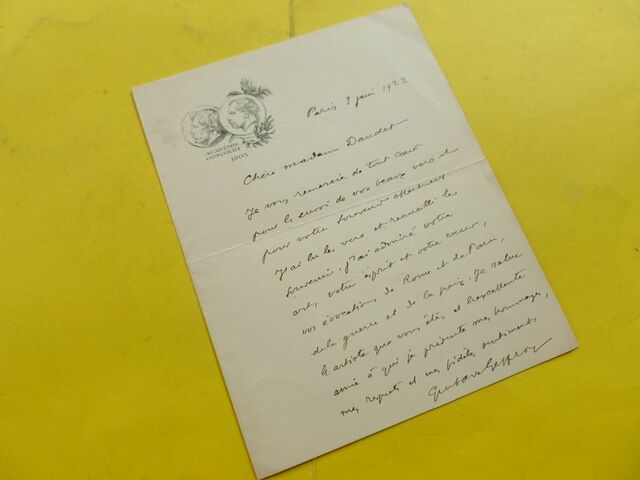 ACADÉMIE
GONCOURT
1903
Paris 3 juin 1923
Chère madame Daudet
Je vous remercie de tout cœur
pour le envoi de vos beaux vers et
pour votre souvenir affectueux
J'ai lu les vers et recueilli le
souvenir, j'ai admiré votre
art, votre esprit et votre cœur,
vos évocations de Rome et de Paris,
de la guerre et de la paix. Je salue
l'artiste que vous êtes, et l'excellente
amie à qui je présente mes hommages,
mes respects et mes fidèles sentiments
Gustave Geffroy